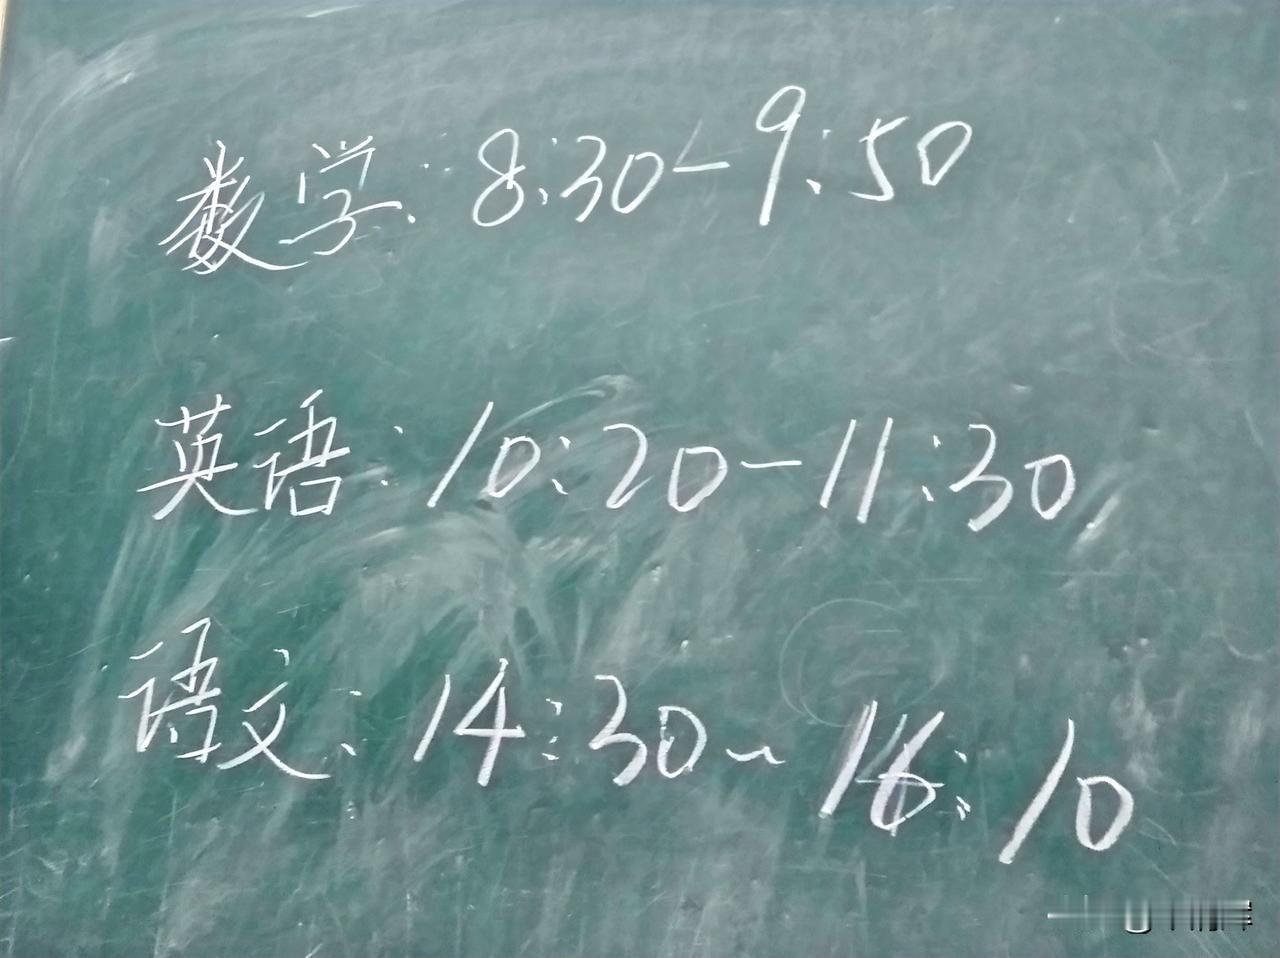 数学：8:30-9:50
英语：10:20-11:30
语文：14:30~16:10